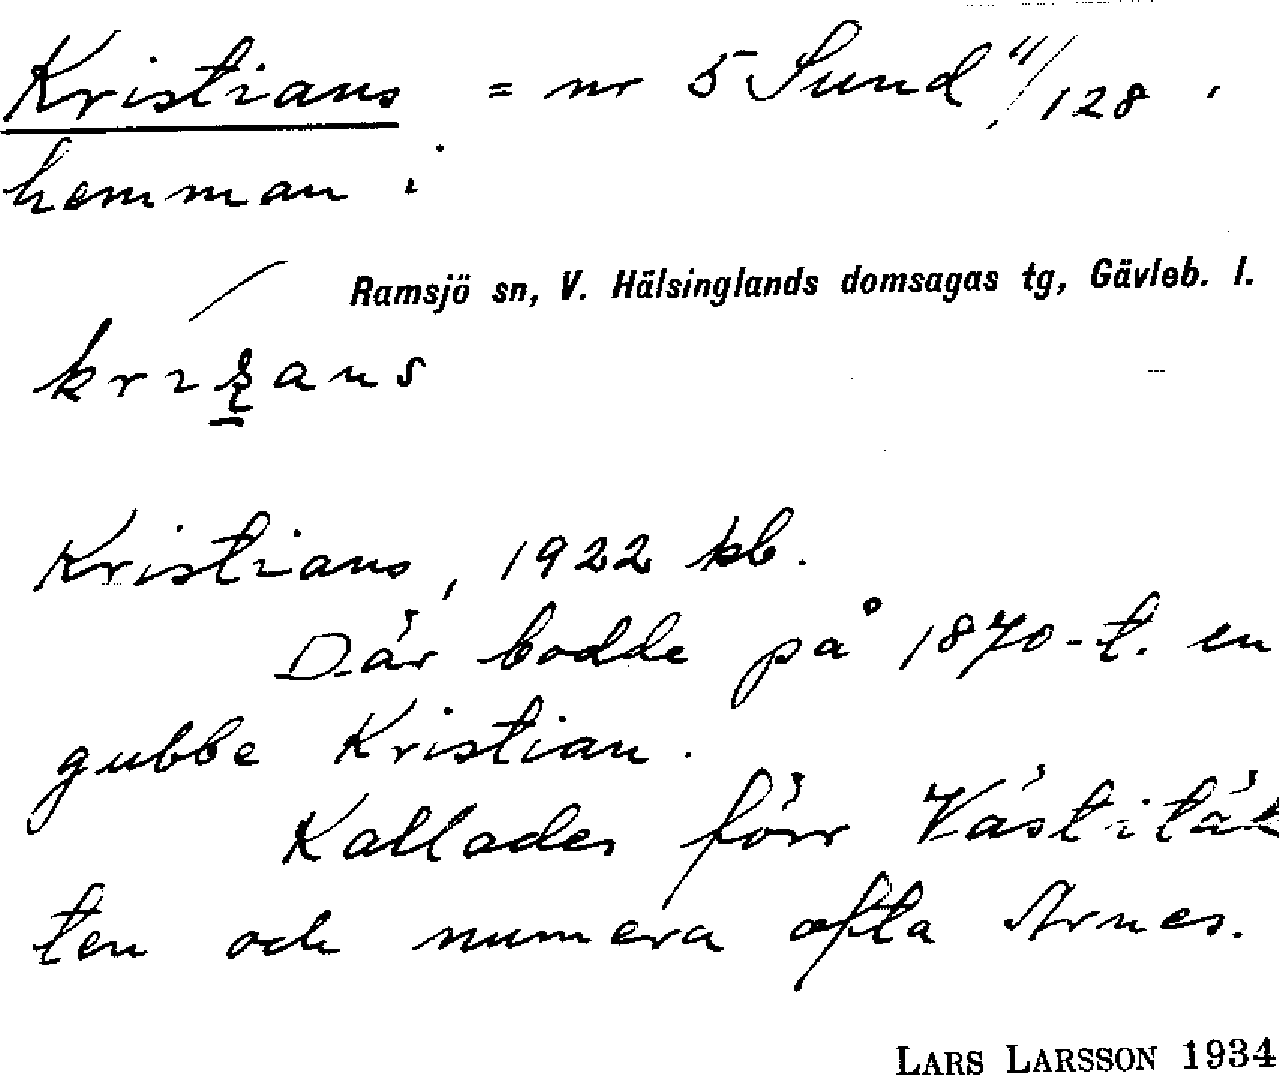 Kristians = nr 5 Sund 11/128 .
hemman i
Ramsjö sn, V. Hälsinglands domsagas tg, Gävleb. l.
Kristians, 1922 kb.
Där bodde på 1870-t. en
gubbe Kristian.
Kallades förr Västitäk
ten och numera ofta Arnes.
LARS LARSSON 1934